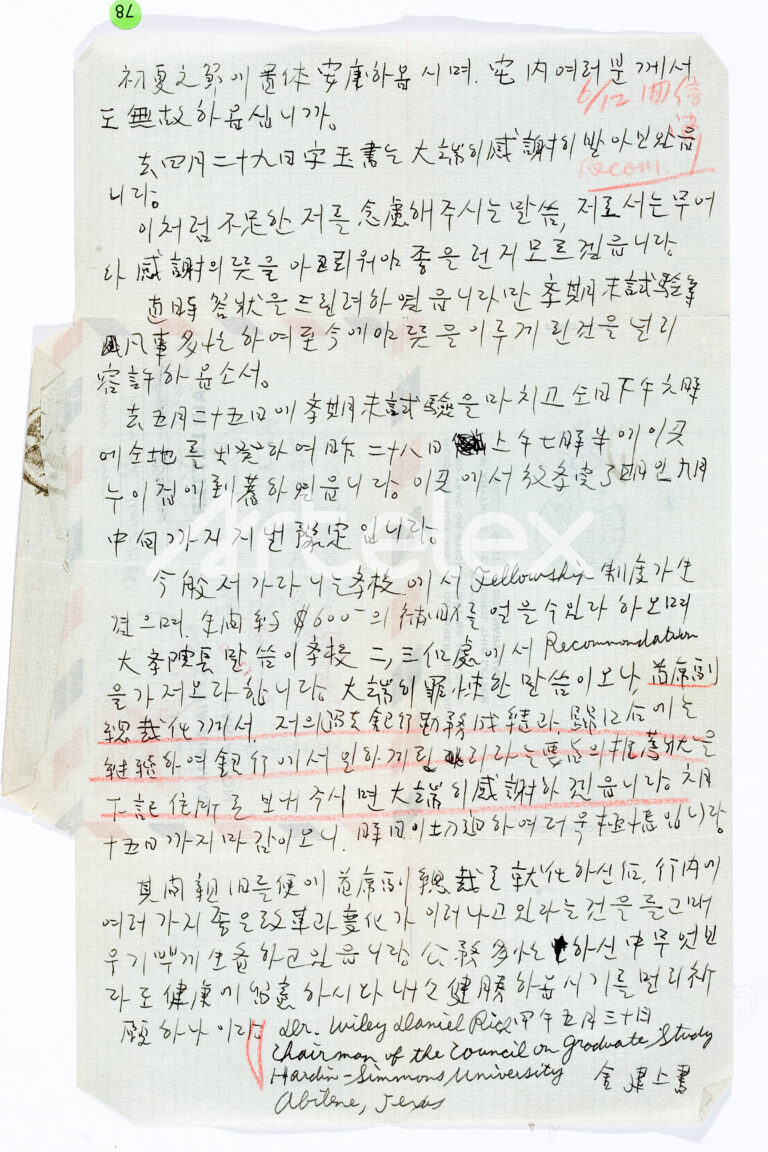 78
初夏之節에 貴体 安康하옵시며. 宅內 여러분께서
6/12 回信
도 無故하옵십니까.
Recom.
去四月二十九日字 玉書는 大端히 感謝히 받아보았읍
니다.
이처럼 不足한 저를 念慮해 주시는 말씀, 저로서는 무어
라 感謝의 뜻을 아뢰워야 좋을런지 모르겠읍니다.
直時 答狀을 드릴려 하였읍니다만 季期末試驗等
凡事多忙하여 至今에야 뜻을 이루게 된 것을 널리
容許하옵소서.
去五月二十五日에 季期末試驗을 마치고 仝日下午六時
에 仝地를 出發하여 昨二十八日 上午七時半에 이곳
누이집에 到着하였읍니다. 이곳에서 放季完了日인 九月
中旬까지 지낼 豫定입니다.
今般 저가 다니는 季校에서 Fellowship 制度가 生
겼으며. 年間 約 $600-의 補助를 얻을 수 있다 하오며
大季院長 말씀이 季校 二, 三個處에서 Recommondation
을 가저오라 합니다. 大端히 罪悚한 말씀이오나, 首席副
總裁任께서, 저의 過去 銀行 勤務成績과, 歸任后에는
継續하여 銀行에서 일하게 되리라는 要旨의 推薦狀을
下記 住所로 보내주시면 大端히 感謝하겠읍니다. 六月
十五日까지 마감이오니. 時日이 切迫하여 더욱 極悚입니다.
其間 親旧를 便에 首席副總裁로 就任하신 后, 行內에
여러가지 좋은 改革과 變化가 이러나고 있다는 것을 듣고 매
우 기쁘게 生각하고 있읍니다. 公務多忙하신 中 무엇보
다도 健康에 留意하시와 내내 健勝하옵시기를 멀리 祈
願하나이다. 甲午五月三十日
Dr. Wiley Daniel Rich
Chairman of the Council on Graduate Study
Hardin-Simmons University 金 建 上書
Abilene, Texas
Artelex